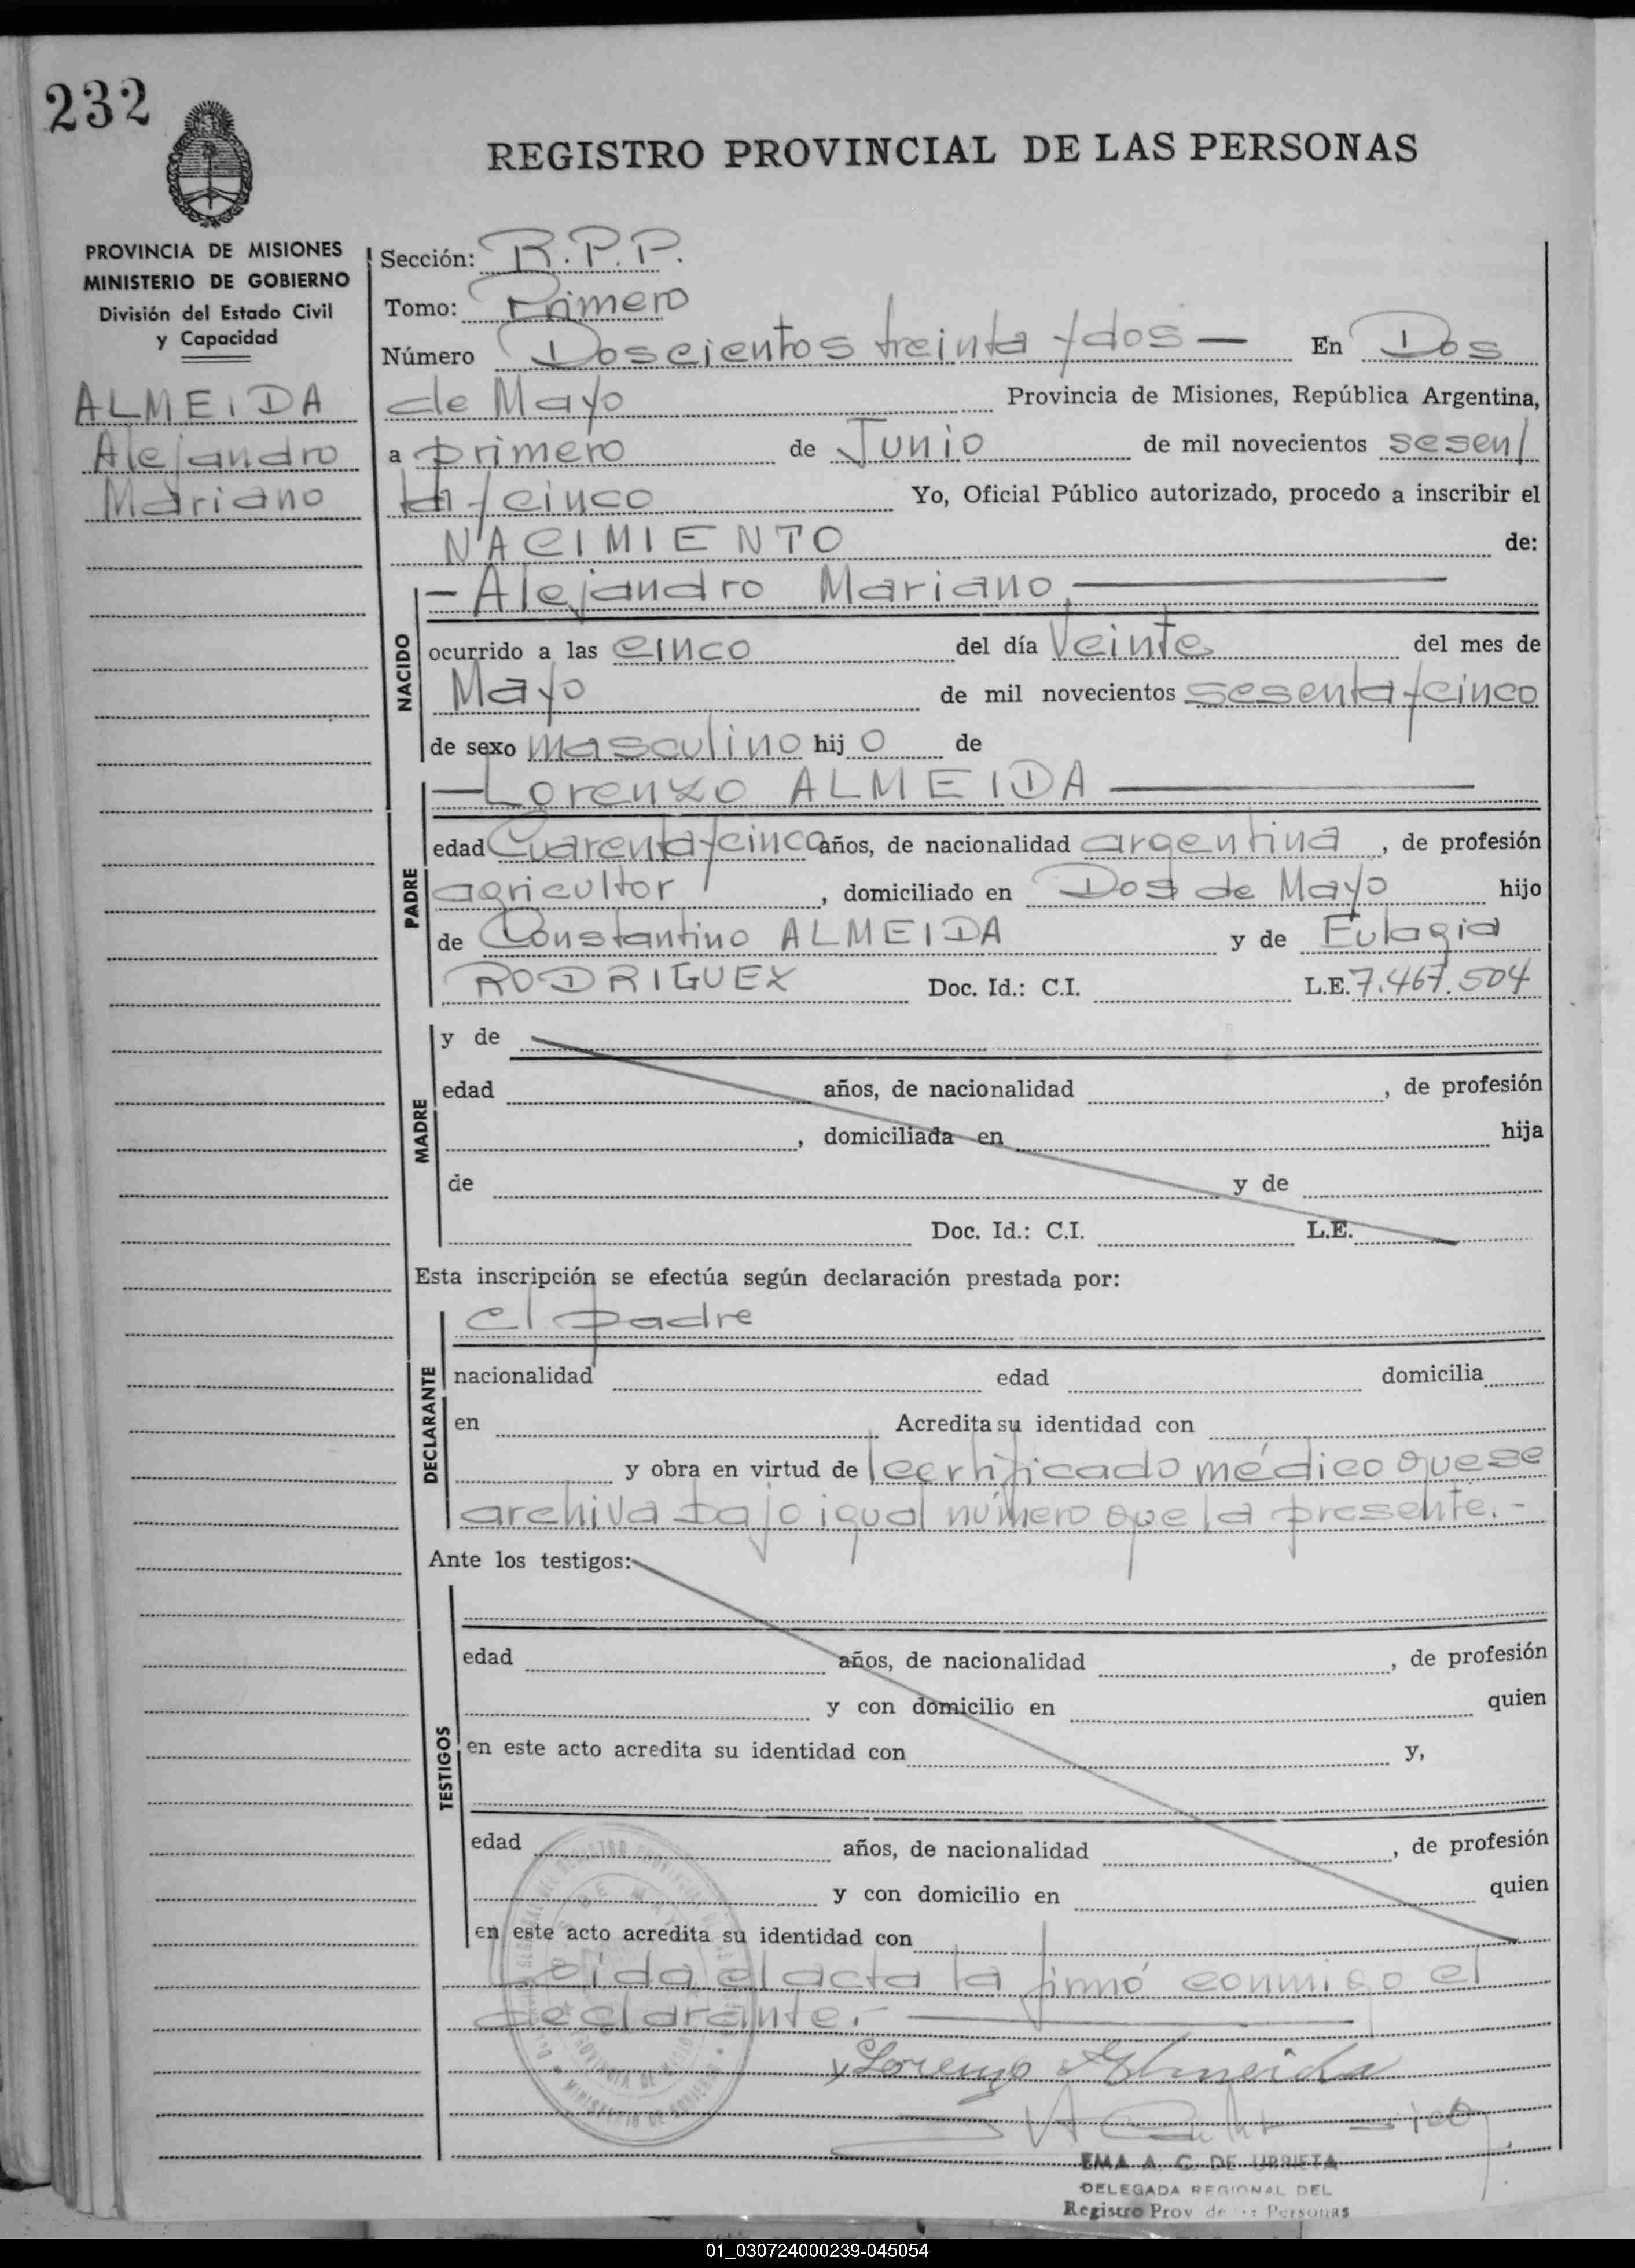 232
REGISTRO PROVINCIAL DE LAS PERSONAS
PROVINCIA DE MISIONES
MINISTERIO DE GOBIERNO
División del Estado Civil
y Capacidad
ALMEIDA
Alejandro
Mariano
Sección: R.P.P.
Tomo: Primero
Número Doscientos treinta y dos — En Dos
de Mayo Provincia de Misiones, República Argentina,
a primero de Junio de mil novecientos sesen/
ta y cinco Yo, Oficial Público autorizado, procedo a inscribir el
NACIMIENTO de:
NACIDO
— Alejandro Mariano —
ocurrido a las cinco del día Veinte del mes de
Mayo de mil novecientos sesenta y cinco
de sexo masculino hij o de
PADRE
— Lorenzo ALMEIDA —
edad Cuarenta y cinco años, de nacionalidad argentina, de profesión
agricultor, domiciliado en Dos de Mayo hijo
de Constantino ALMEIDA y de Eulogia
RODRIGUEZ Doc. Id.: C.I. L.E. 7.467.504
MADRE
y de
edad años, de nacionalidad , de profesión
, domiciliada en hija
de y de
Doc. Id.: C.I. L.E.
Esta inscripción se efectúa según declaración prestada por:
DECLARANTE
el padre
nacionalidad edad domicilia
en Acredita su identidad con
y obra en virtud de certificado médico que se
archiva bajo igual número que la presente.-
Ante los testigos:
TESTIGOS
edad años, de nacionalidad , de profesión
y con domicilio en quien
en este acto acredita su identidad con y,
edad años, de nacionalidad , de profesión
y con domicilio en quien
en este acto acredita su identidad con
Leida el acta la firmó conmigo el
declarante.-
Lorenzo Almeida
EMA A. C. DE URRIETA
DELEGADA REGIONAL DEL
Registro Prov de Personas
MINISTERIO DE GOBIERNO
01_030724000239-045054